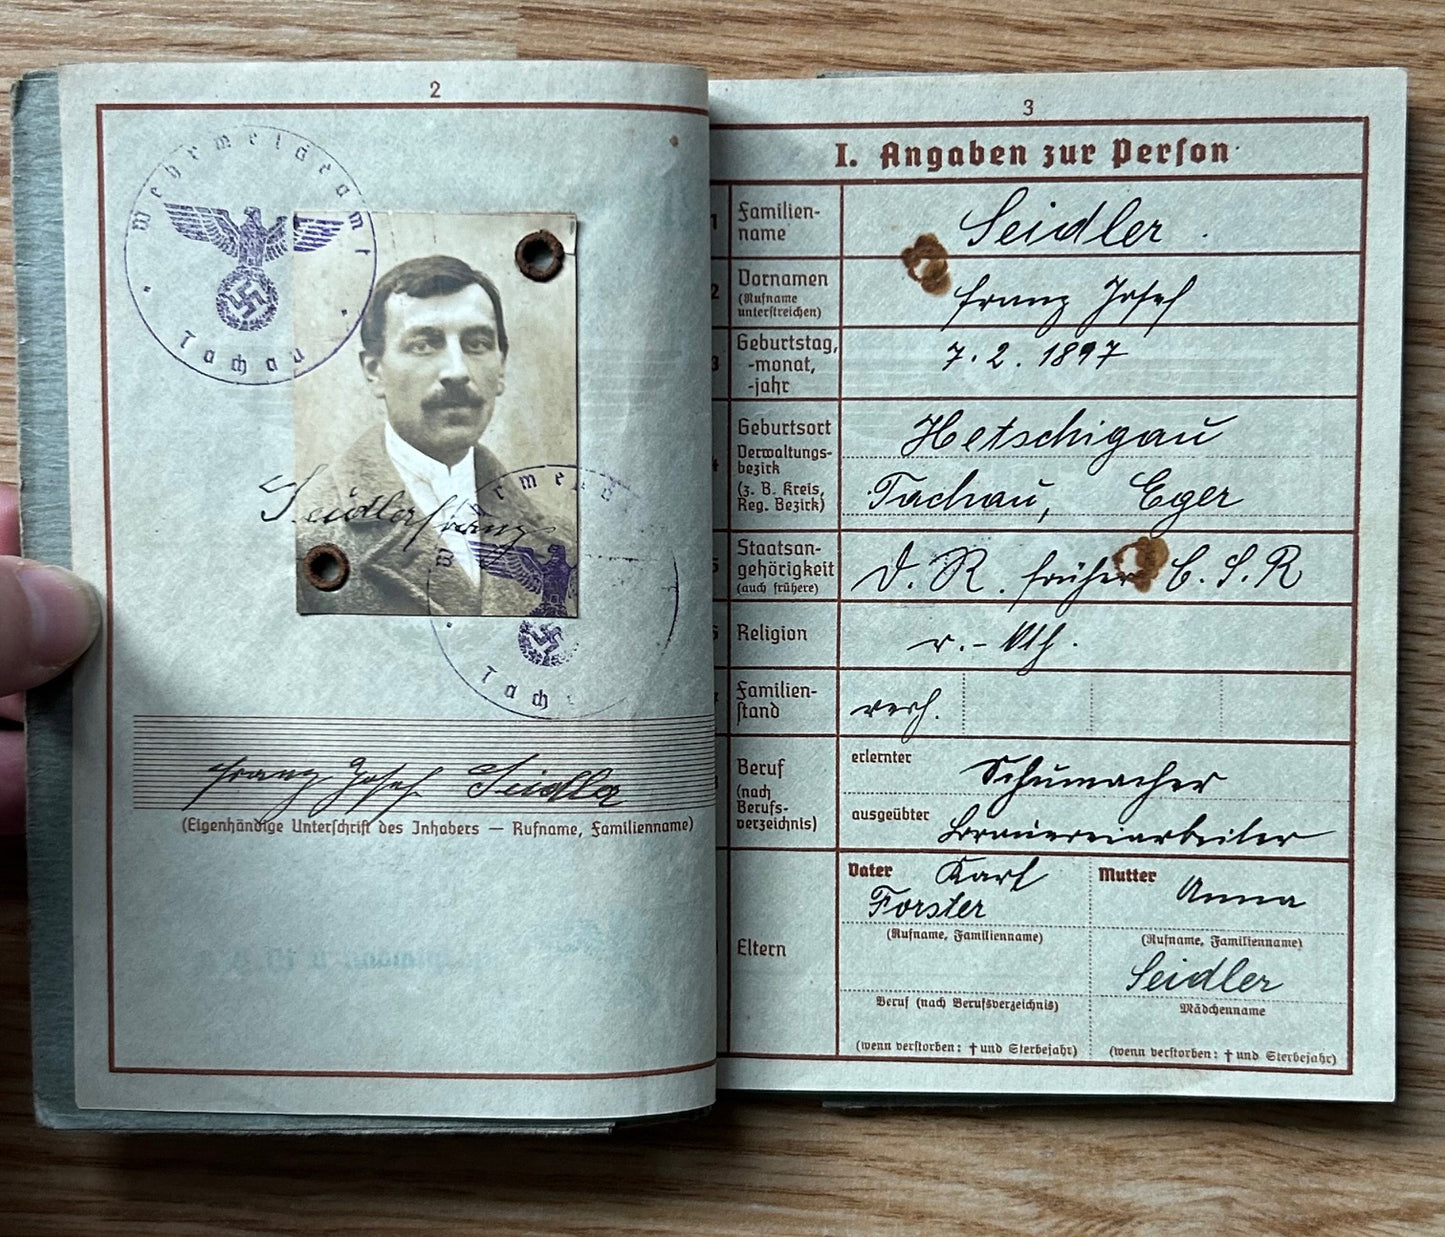 2
Wehrmeldeamt
Tachau
Seidler Franz
Wehrmeld
Tach
Franz Josef Seidler
(Eigenhändige Unterschrift des Inhabers — Rufname, Familienname)
3
I. Angaben zur Person
1 Familien-
name
Seidler
2 Vornamen
(Rufname
unterstreichen)
Franz Josef
3 Geburtstag,
-monat,
-jahr
7. 2. 1897
4 Geburtsort
Verwaltungs-
bezirk
(z. B. Kreis,
Reg. Bezirk)
Hetschigau
Tachau, Eger
5 Staatsan-
gehörigkeit
(auch frühere)
D. R. früher C. S. R
Religion
r.-kth.
Familien-
stand
verh.
Beruf
(nach
Berufs-
verzeichnis)
erlernter Schumacher
ausgeübter Brauereiarbeiter
Eltern
Vater Karl
Forster
(Rufname, Familienname)
Beruf (nach Berufsverzeichnis)
(wenn verstorben: † und Sterbejahr)
Mutter Anna
(Rufname, Familienname)
Seidler
Mädchenname
(wenn verstorben: † und Sterbejahr)